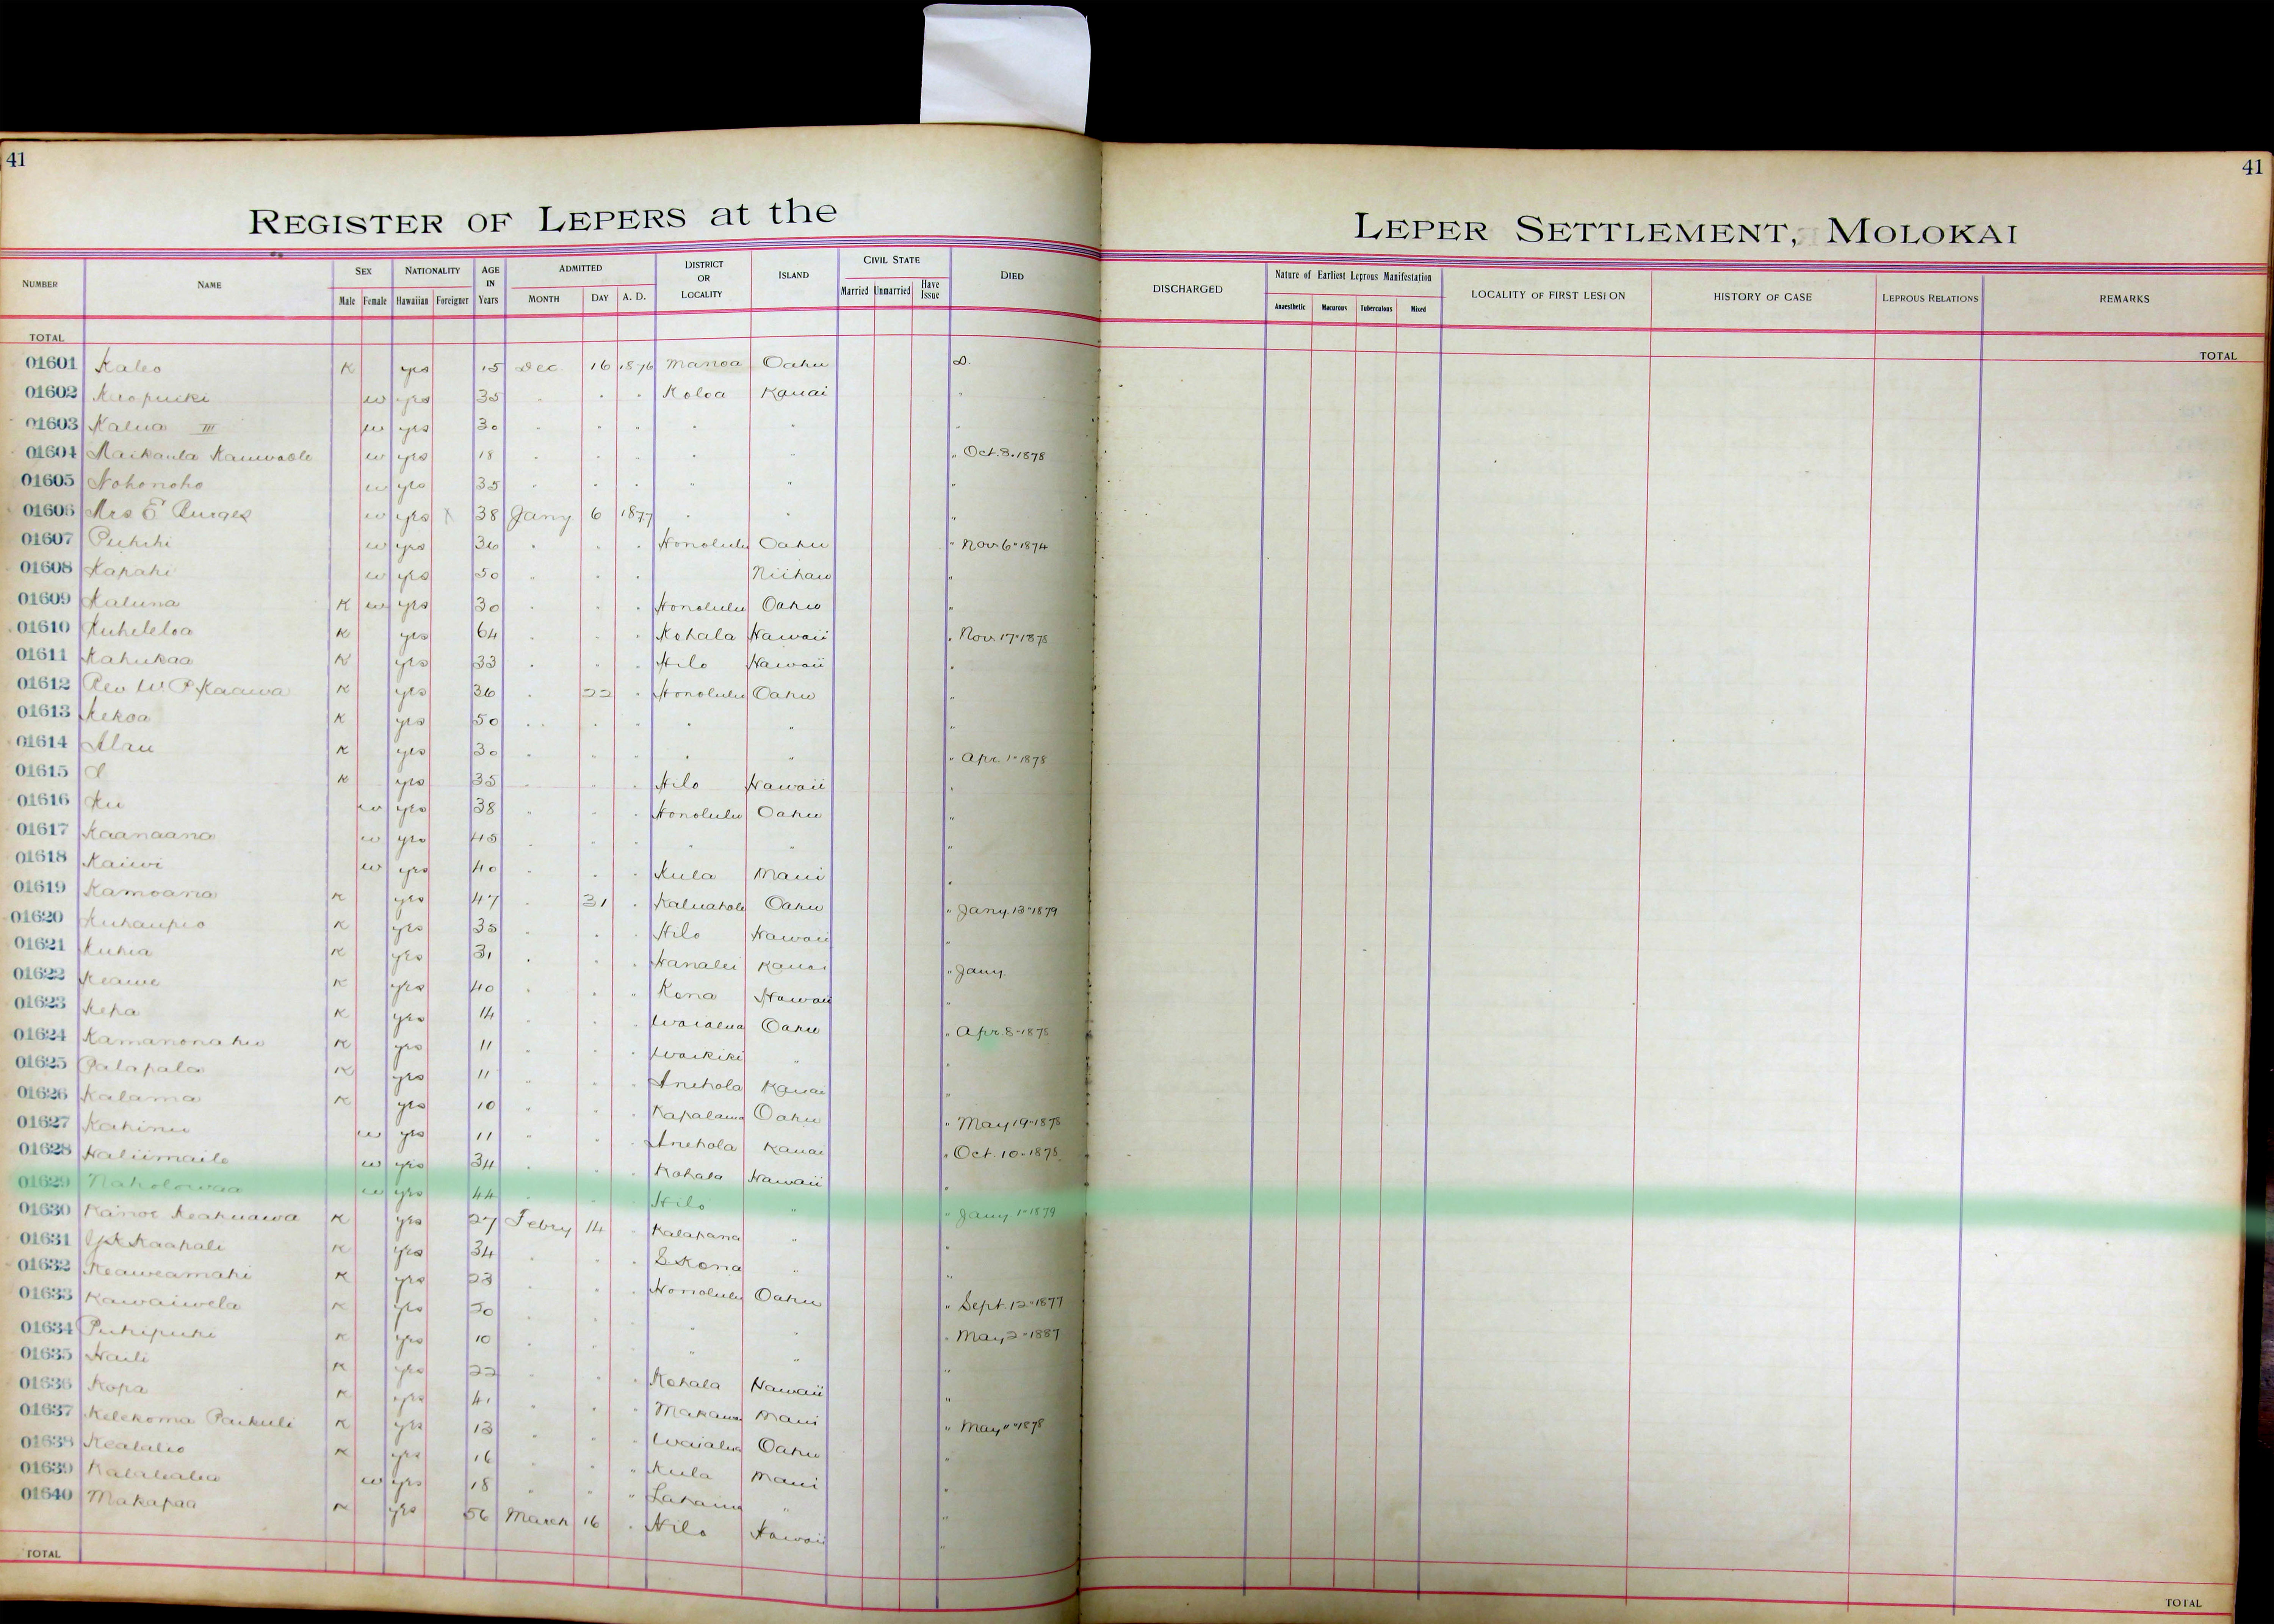 41
41
REGISTER OF LEPERS at the
LEPER SETTLEMENT, MOLOKAI
NUMBER NAME SEX Male Female NATIONALITY Hawaiian Foreigner AGE IN Years ADMITTED MONTH DAY A. D. DISTRICT OR LOCALITY ISLAND CIVIL STATE Married Unmarried Have Issue DIED
DISCHARGED Nature of Earliest Leprous Manifestation Anaesthetic Macurous Tuberculous Mixed LOCALITY OF FIRST LESION HISTORY OF CASE LEPROUS RELATIONS REMARKS
TOTAL
TOTAL
01601 Kaleo K yes 15 Dec. 16 1876 Manoa Oahu D.
01602 w yes 35 " " " Koloa Kauai "
01603 Kalua III w yes 30 " " " " " "
01604 w yes 18 " " " " " " Oct. 3. 1878
01605 Nohonoho w yes 35 " " " " " "
01606 Mrs E Burges w yes X 38 Jany 6 1877 " " "
01607 Puhihi w yes 36 " " " Honolulu Oahu " Nov 6" 1874
01608 Kapahi w yes 50 " " " Niihau "
01609 Kaluna K w yes 30 " " " Honolulu Oahu "
01610 Kuheleloa K yes 64 " " " Kohala Hawaii " Nov 17" 1878
01611 Kahukaa K yes 33 " " " Hilo Hawaii "
01612 Rev W. P. Kaawa K yes 36 " 22 " Honolulu Oahu "
01613 Kekoa K yes 50 " " " " " "
01614 Alau K yes 30 " " " " " " Apr. 1" 1878
01615 K yes 35 " " " Hilo Hawaii "
01616 Ku w yes 38 " " " Honolulu Oahu "
01617 Kaanaana w yes 45 " " " " " "
01618 Kaiwi w yes 40 " " " Kula Maui "
01619 Kamoana K yes 47 " 31 " Oahu " Jany. 13" 1879
01620 Kuhaupio K yes 35 " " " Hilo Hawaii "
01621 Kuhia K yes 31 " " " Hanalei Kauai " Jany.
01622 Keawe K yes 40 " " " Kona Hawaii "
01623 Kepa K yes 14 " " " Waialua Oahu " Apr. 8" 1878
01624 K yes 11 " " " Waikiki " "
01625 Palapala K yes 11 " " " Anehola Kauai "
01626 Kalama K yes 10 " " " Kapalama Oahu " May 19" 1878
01627 Kahinu w yes 11 " " " Anehola Kauai " Oct. 10" 1878
01628 Haliimaile w yes 34 " " " Kohala Hawaii "
01629 Naholowaa w yes 44 " " " Hilo " " Jany 1" 1879
01630 Kainoe Keakuawa K yes 27 Febry 14 " Kalapana " "
01631 Kaahale K yes 34 " " " S. Kona " "
01632 Keaweamahi K yes 23 " " " Honolulu Oahu " Sept. 12" 1877
01633 Kawaiwela K yes 20 " " " " " " May 2" 1887
01634 Puhipuhi K yes 10 " " " " " "
01635 Haili K yes 22 " " " Kohala Hawaii "
01636 Kopa K yes 41 " " " Makawa Maui " May 11" 1878
01637 Kelekoma Paikuli K yes 13 " " " Waialua Oahu "
01638 Kealalio K yes 16 " " " Kula Maui "
01639 w yes 18 " " " Lahaina " "
01640 Makapaa K yes 56 March 16 " Hilo Hawaii "
TOTAL
TOTAL